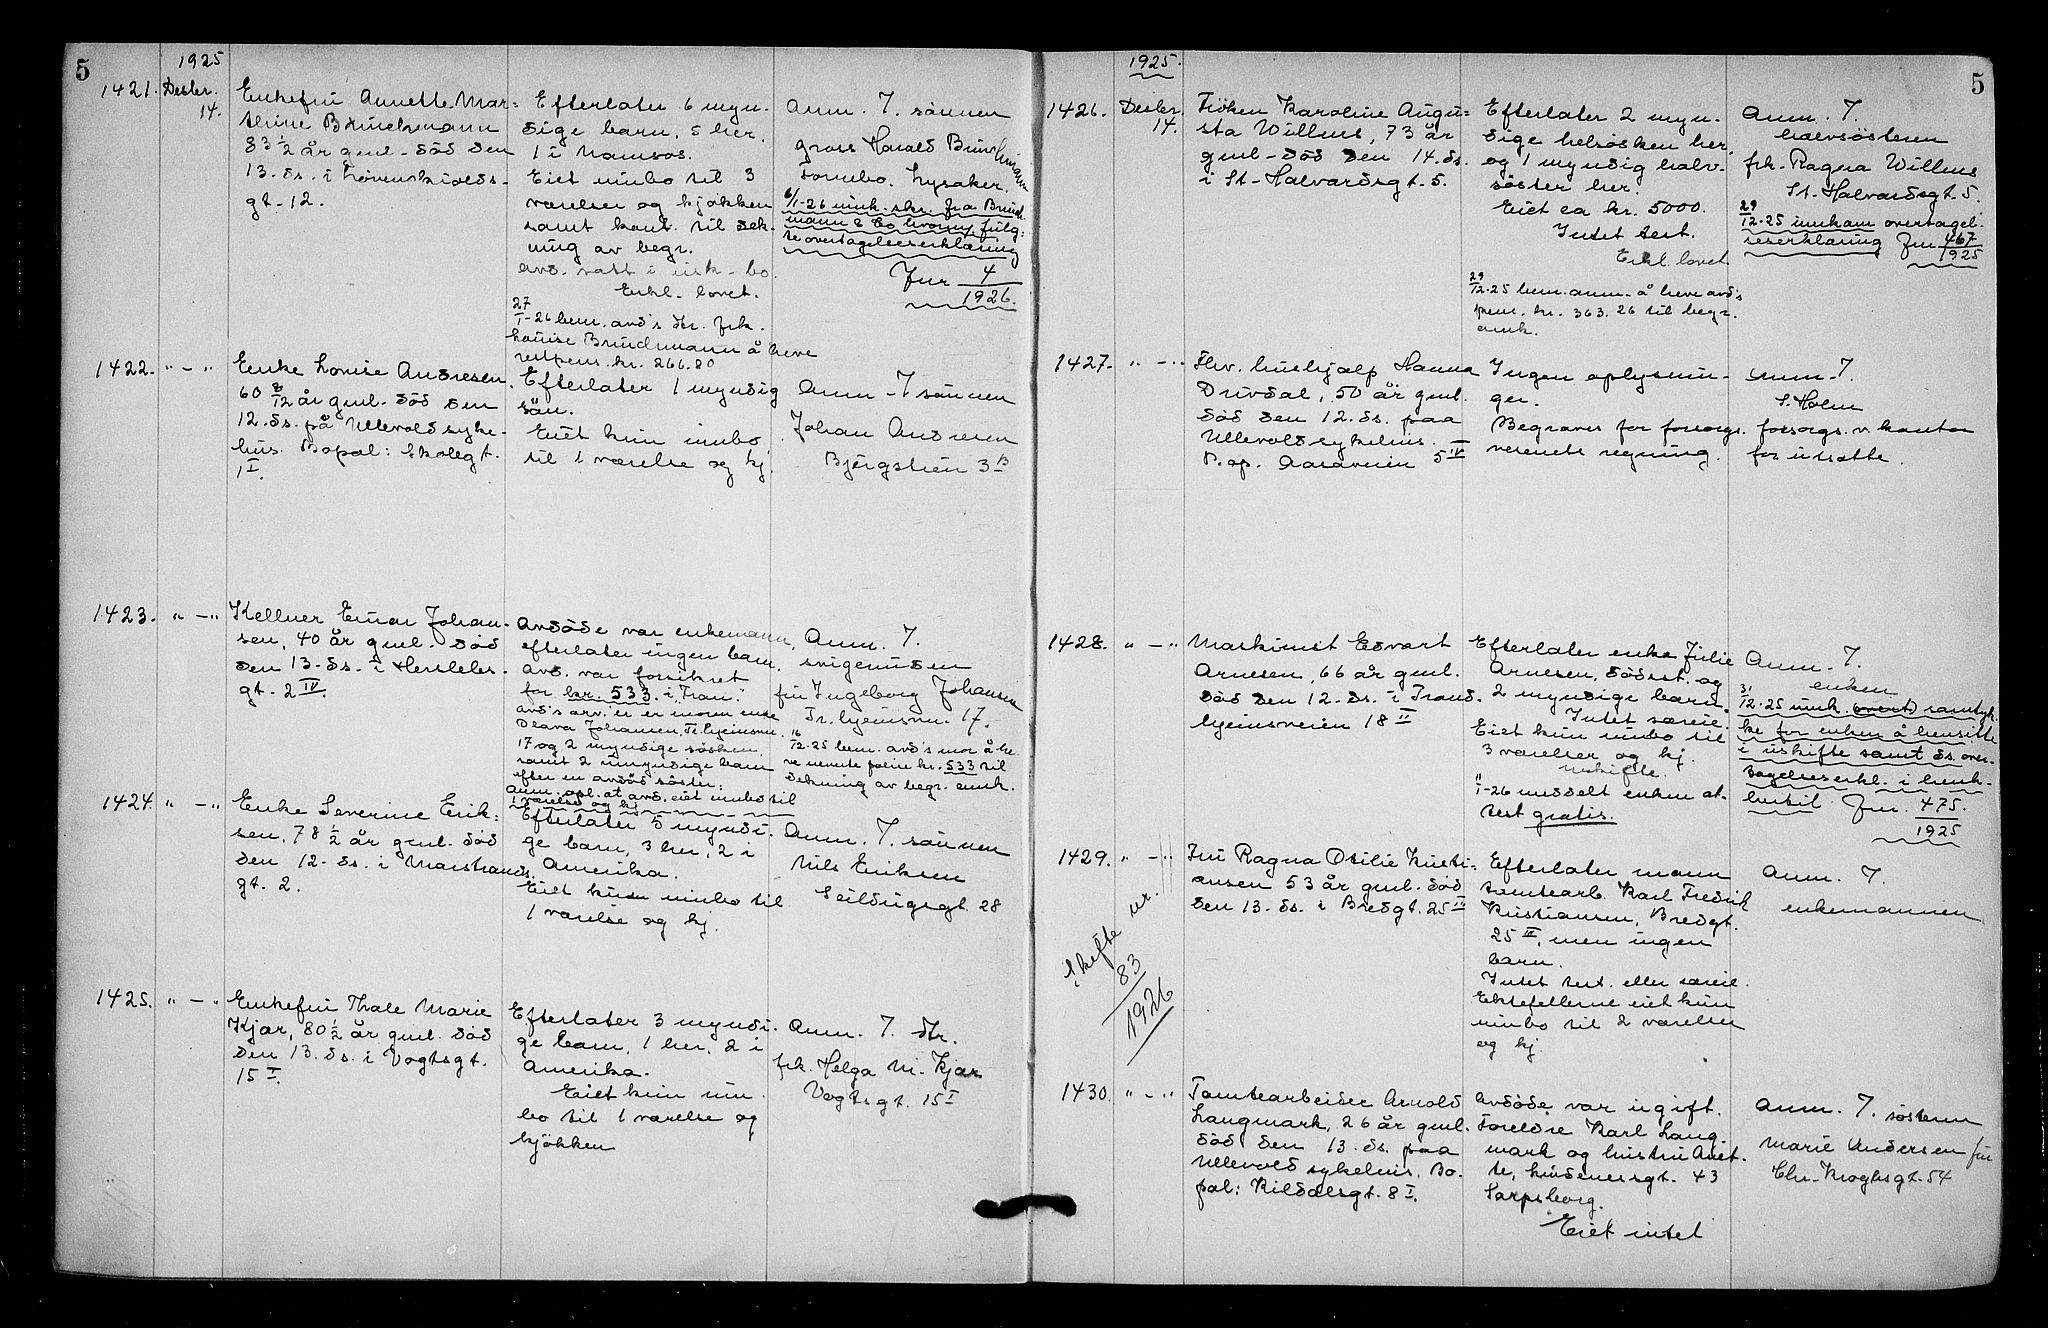 5
1925
1421. Desbr. 14.
Enkefru Annette Mar=
thine Brinchmann
83 1/2 år gml. død den
13. ds. i Løvenskiolds-
gt. 12.
Efterlater 6 myn-
dige barn, 5 her,
1 i Namsos.
Eiet innbo til 3
værelser og kjøkken
samt kont. til dek-
ning av begr.
avd. satt i uisk. bo.
Erkl. lovet.
27/1-26 bem. avd's dtr. frk.
Louise Brinchmann å heve
restpens. kr. 266.80
Anm. T. sønnen
gross Harald Brinchmann
Fornebo. Lysaker.
6/1-26 innk. skr. fra Brinch
mann & Co hvormed følg=
te overtagelseserklæring
Jnr 4/1926.
1422. " - "
Enke Lovise Andresen.
60 8/12 år gml. død den
12. ds. på Ullevold syke-
hus. Bopal: Skolegt.
1 I.
Efterlater 1 myndig
søn.
Eiet kun innbo
til 1 værelse og kj.
Anm. T sønnen
Johan Andresen
Bjergstien 3 B
1423. " - "
Kellner Einar Johan-
sen, 40 år gml. død
den 13. ds. i Herslebs-
gt. 2 IV.
Avdøde var enkemann,
efterlater ingen barn.
Avd. var forsikret
for kr. 533 i "Fram".
avd's arv. er moren enke
Olava Johansen, Tr.hjemsvn.
17 og 2 myndige søsken
samt 2 umyndige barn
efter en avdød søster.
Anm. opl. at avd. eiet innbo til
1 værelse og kj.
Anm. T.
svigerinden
fru Ingeborg Johansen
Tr. hjemsvn. 17.
16/12-25 bem. avd's mor å he-
ve nevnte polise kr. 533 til
dekning av begr. omk.
1424. " - "
Enke Severine Erik=
sen, 78 1/2 år gml. død
den 12. ds. i Marstrands
gt. 2.
Efterlater 5 myndi-
ge barn, 3 her, 2 i
Amerika.
Eiet kun innbo til
1 værelse og kj.
Anm. T. sønnen
Nils Eriksen
Seilduksgt. 28
1425. " - "
Enkefru Thale Marie
Kjær, 80 1/2 år gml. død
den 13. ds. i Vogtsgt.
15 I.
Efterlater 3 myndi-
ge barn, 1 her, 2 i
Amerika.
Eiet kun inn-
bo til 1 værelse og
kjøkken
Anm. T. dtr.
frk. Helga M. Kjær
Vogtsgt. 15 I
5
1925.
1426. Desbr. 14.
Frøken Karoline Augu=
sta Willums, 73 år
gml. død den 14. ds.
i St. Halvardsgt. 5.
Efterlater 2 myn-
dige helsøsken her,
og 1 myndig halv-
søster her.
Eiet ca kr. 5000.
Intet test.
Erkl. lovet
29/12-25 bem. anm. å heve avd's
pens. kr. 363.26 til begr.
omk.
Anm. T.
halvsøsteren
frk. Ragna Willums
St. Halvardsgt. 5.
29/12-25 innkom overtagel-
seserklæring Jnr 467/1925
1427. " - "
Fhv. hushjælp Hanna
Drivdal, 50 år gml.
død den 12. ds. paa
Ullevold sykehus.
Bop. Aasaveien 5 IV
Ingen oplysnin-
ger.
Begraves for forsorgs-
vesenets regning.
Anm. T.
S. Holm
forsorgs.v. kontor
for utsatte.
1428. " - "
Maskinist Edvart
Arnesen, 66 år gml.
død den 12. ds. i Trond-
hjemsveien 18 II
Efterlater enke Julie
Arnesen, dødsst. og
2 myndige barn.
Intet særeie.
Eiet kun innbo til
3 værelser og kj.
uskifte.
11/1-26 meddelt enken at-
test gratis.
Anm. T.
enken
31/12-25 innk. (overt.) samtyk-
ke for enken å hensitte
i uskifte samt ds. over-
tagelseserkl. i henh-
hertil Jnr. 475./1925
1429. " - "
Fru Ragna Otilie Kristi=
ansen 53 år gml. død
den 13. ds. i Bredgt. 25 III
Efterlater mann
tomtearb. Karl Fredrik
Kristiansen, Bredgt.
25 III, men ingen
barn.
Intet test. eller særeie.
Ektefellerne eiet kun
innbo til 2 værelser
og kj.
Anm. T.
enkemannen
Skifte nr.
83
1926
1430. " - "
Tomtearbeider Arnold
Langmark, 26 år gml.
død den 13. ds. paa
Ullevold sykehus. Bo-
pal: Kildalsgt. 8 I.
Avdøde var ugift.
Foreldre Karl Lang-
mark og hustru Anet-
te, 43
Sarpsborg.
Eiet intet
Anm. T. søsteren
Marie Andersen fru
Chr. Kroghsgt. 54